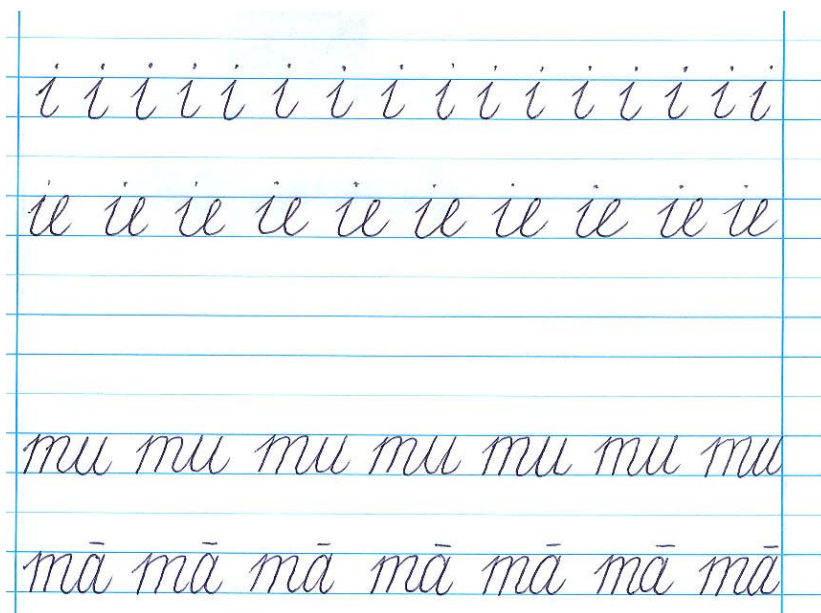 i i i i i i i i i i i i i i i i
ie ie ie ie ie ie ie ie ie ie
mu mu mu mu mu mu mu
mā mā mā mā mā mā mā